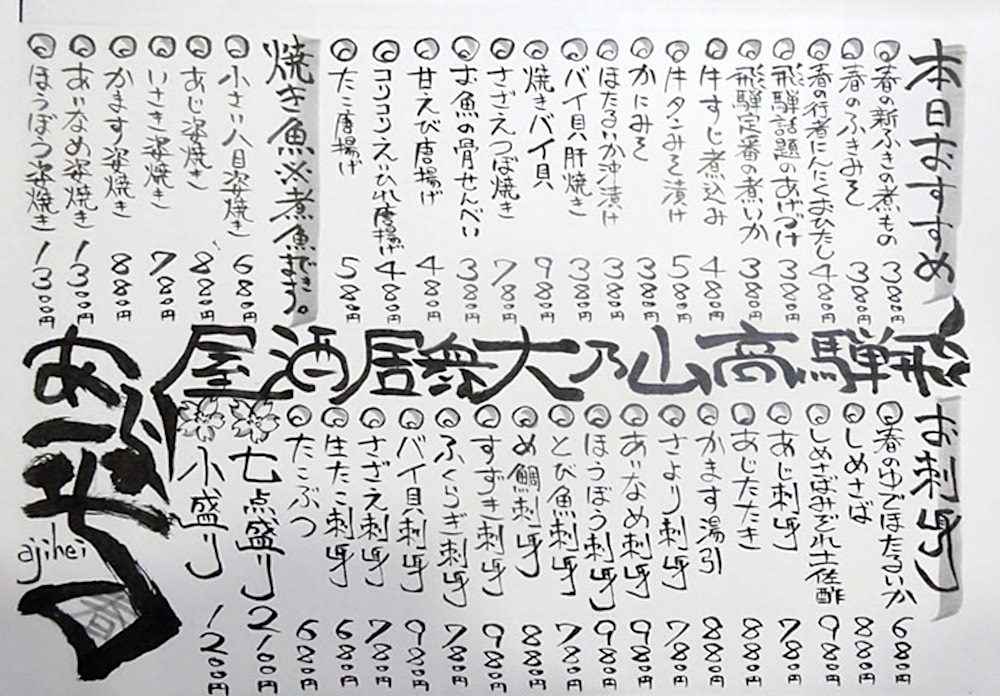 本日おすすめ
春の新ふきの煮もの 380円
春のふきみそ 380円
春の行者にんにくおひたし 480円
飛騨話題のあげづけ 380円
飛騨定番の煮いか 380円
牛すじ煮込み 480円
牛タンみそ漬け 580円
かにみそ 380円
ほたるいか沖漬け 380円
バイ貝肝焼き 380円
焼きバイ貝 980円
さざえつぼ焼き 780円
お魚の骨せんべい 380円
甘えび唐揚げ 480円
コリコリえいひれ唐揚げ 480円
たこ唐揚げ 580円
焼き魚※煮魚もできます。
小さい八目姿焼き 680円
あじ姿焼き 880円
いさき姿焼き 780円
かます姿焼き 880円
あいなめ姿焼き 1300円
ほうぼう姿焼き 1300円
飛騨高山乃大衆居酒屋
あじ平
ajihei
お刺身
春のゆでほたるいか 680円
しめさば 880円
しめさばみぞれ土佐酢 980円
あじ刺身 780円
あじたたき 880円
かます湯引 880円
さより刺身 780円
あいなめ刺身 980円
ほうぼう刺身 980円
とび魚刺身 780円
め鯛刺身 880円
すずき刺身 980円
ふくらぎ刺身 780円
バイ貝刺身 980円
さざえ刺身 780円
生たこ刺身 680円
たこぶつ 680円
七点盛り 2100円
小盛り 1200円